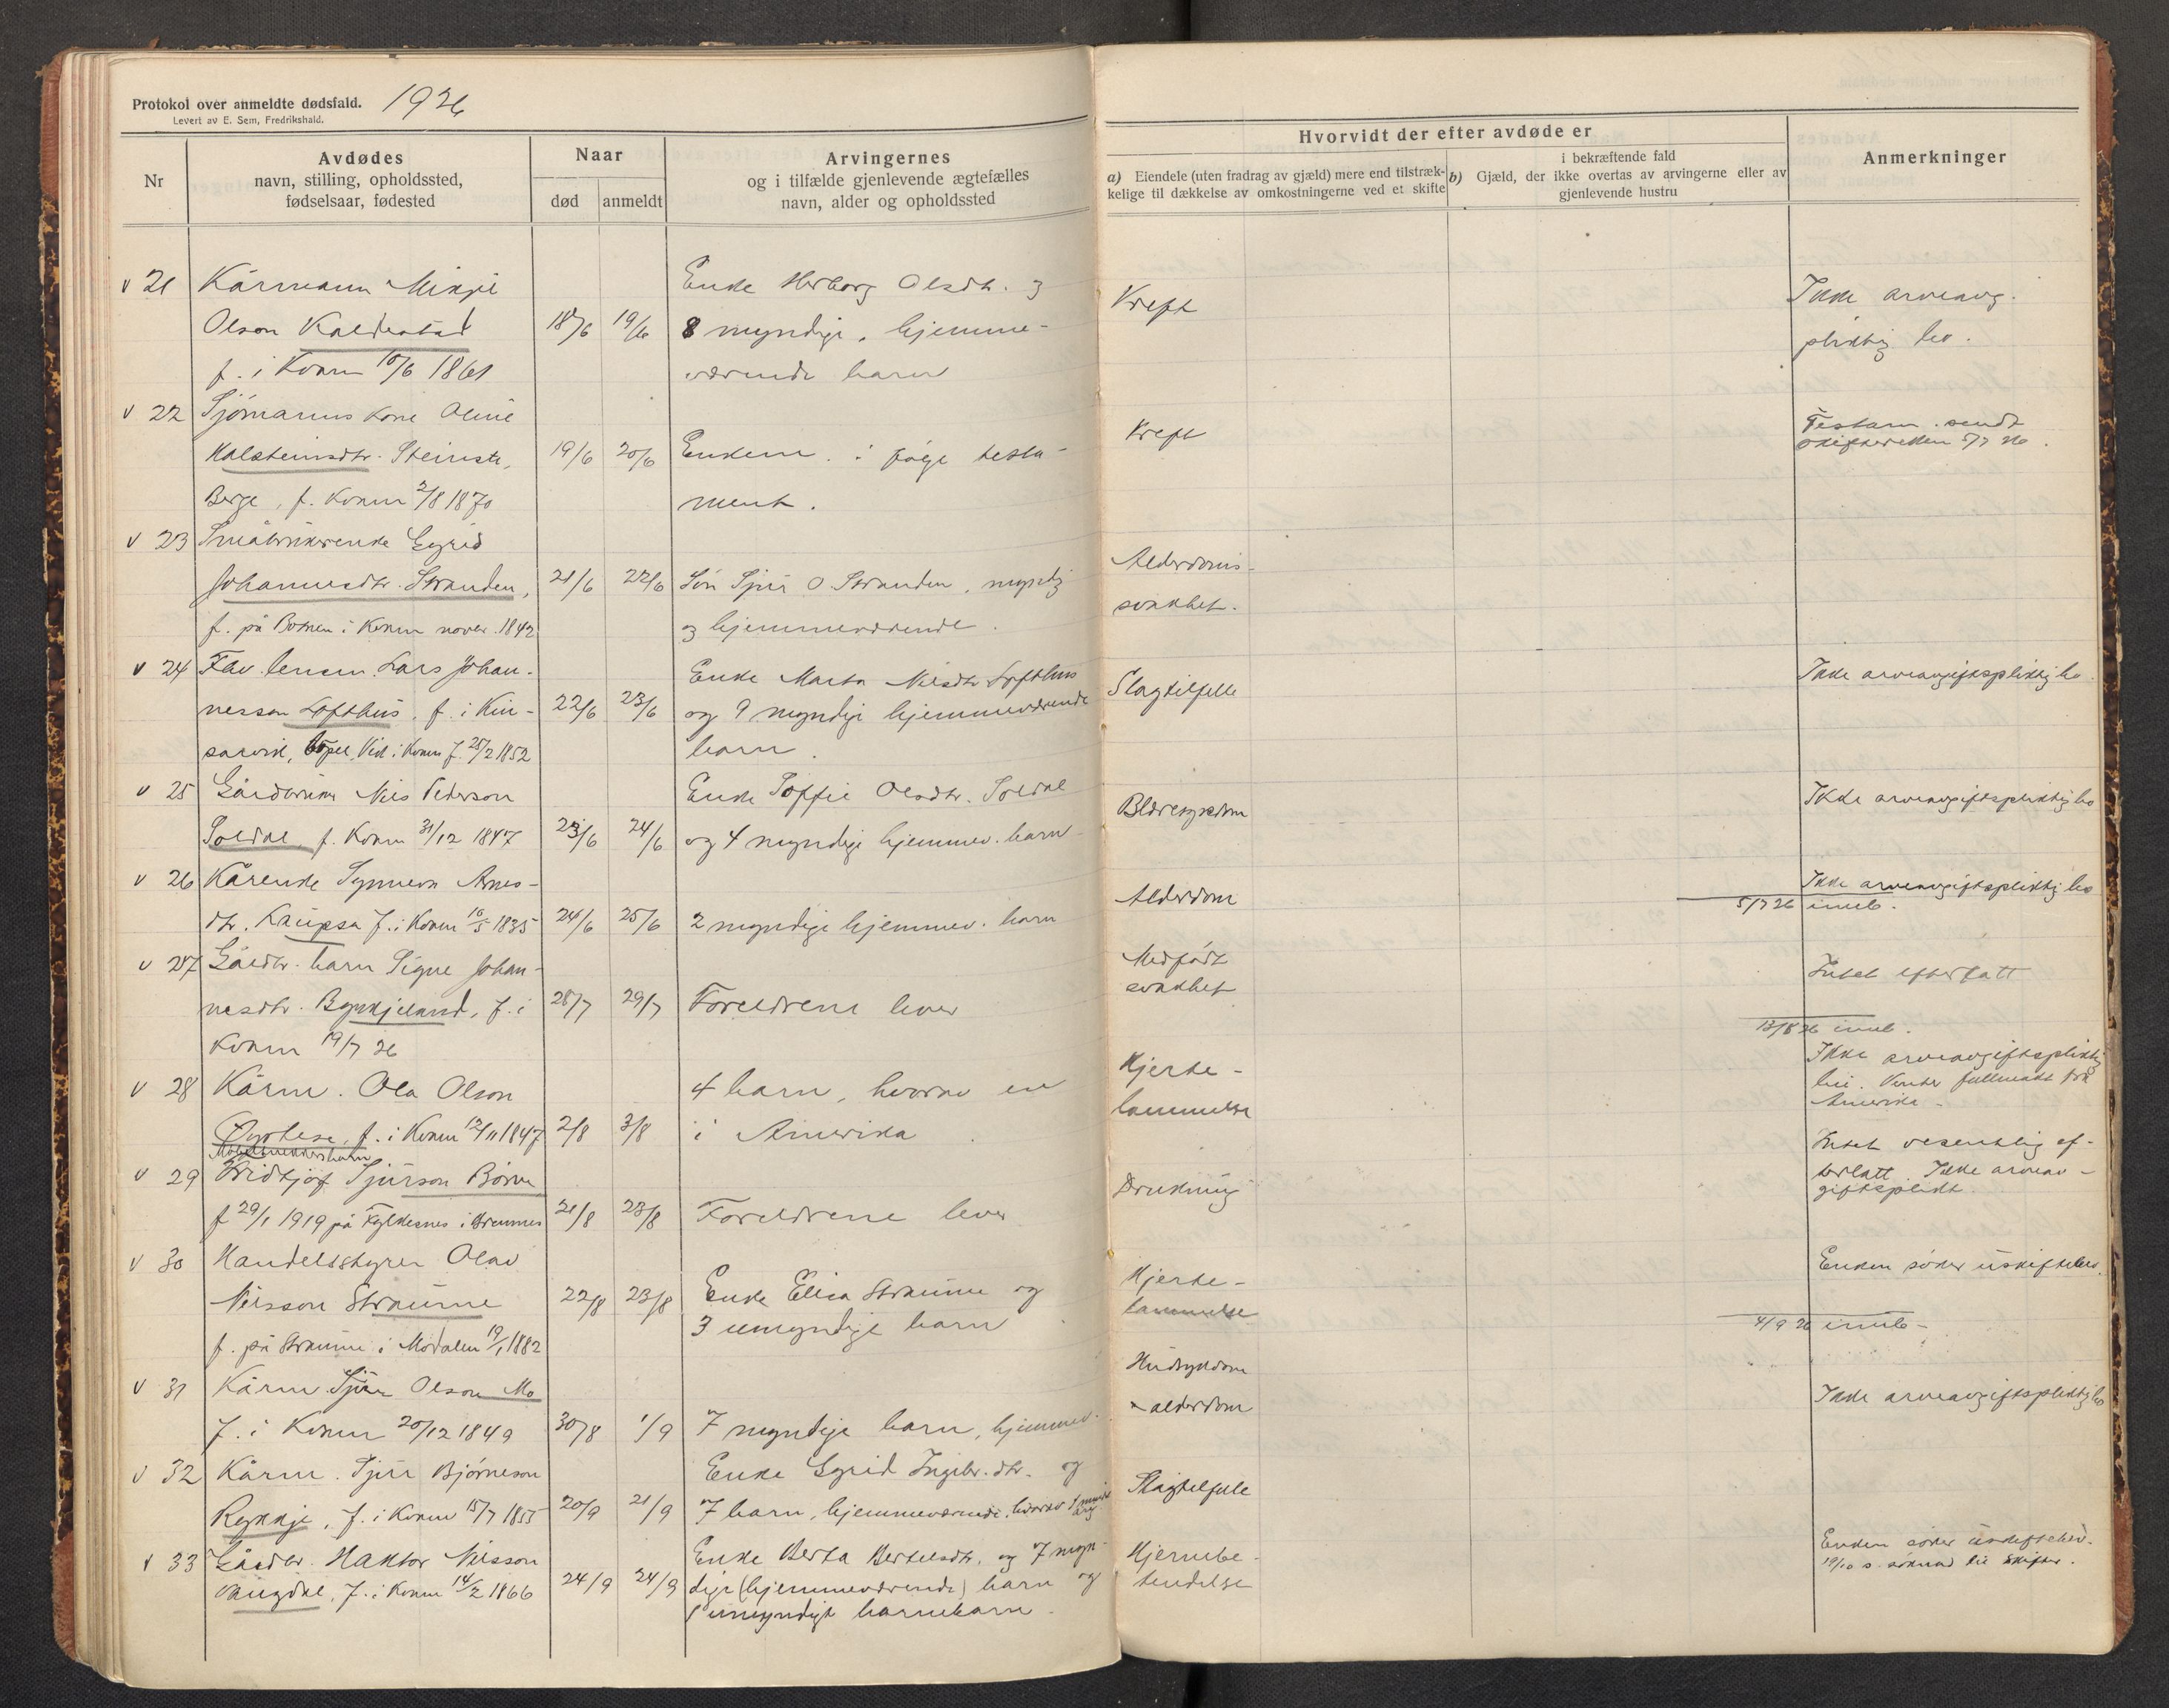 Protokol over anmeldte dødsfald. 1926
Levert av E. Sem, Fredrikshald.
Nr
Avdødes
navn, stilling, opholdssted,
fødselsaar, fødested
Naar
død
anmeldt
Arvingernes
og i tilfælde gjenlevende ægtefælles
navn, alder og opholdssted
Hvorvidt der efter avdøde er
a) Eiendele (uten fradrag av gjæld) mere end tilstræk-
kelige til dækkelse av omkostningerne ved et skifte
i bekræftende fald
b) Gjæld, der ikke overtas av arvingerne eller av
gjenlevende hustru
Anmerkninger
v 21 Kårmann Mikjel
Olson Kaldestad 18/6 19/6
f. i Kvam 10/6 1861
Enke Herborg Olsdtr. og
8 myndige, hjemme-
værende barn
Kreft
Ikke arveavg.
pliktig bo.
v 22 Sjömanns kone Oline
Halsteinsdtr. Steinstø, 19/6 20/6
Berge, f. Kvam 2/8 1870
Enkem. i følge testa-
ment.
Kreft
Testam. sendt
skifteretten 5/7 26.
v 23 Småbrukerenke Sigrid
Johannesdtr. Stranden, 21/6 22/6
f. på Botnen i Kvam novbr. 1842
Sön Sjur O. Stranden, myndig
og hjemmeværende.
Alderdoms-
svakhet.
v 24 Lars Johan-
nesson Lofthus, f. i Kin- 22/6 23/6
sarvik, Vik i Kvam f. 25/2 1852
Enke Marta Nilsdtr Lofthus
og 9 myndige hjemmeværende
barn.
Slagtilfelle
Ikke arveavgiftspliktig bo.
v 25 Gårdbruker Nils Pederson
Soldal f. Kvam 31/12 1847 23/6 24/6
Enke Soffie Olsdtr. Soldal
og 4 myndige hjemmev. barn
Blæresykdom
Ikke arveavgiftspliktig bo
v 26 Kårenke Synneva Arnes-
dtr. Kaupsa f. i Kvam 10/5 1835 24/6 25/6
2 myndige hjemmev. barn
Alderdom
Ikke arveavgiftspliktig bo
5/7 26 innb.
v 27 Gårdbr. barn Signe Johan-
nesdtr. Byrkjeland, f. i 28/7 29/7
Kvam 19/7 26
Foreldrene lever
Medfødt
svakhet
Intet efterlatt
13/8 26 innb.
v 28 Kårm. Ola Olson
Øystese, f. i Kvam 12/11 1847 2/8 3/8
4 barn, hvorav en
i Amerika.
Hjerte-
lammelse
Ikke arveavgiftspliktig
bu. Venter fullmakt fra
Amerika -
v 29 Møbelsnekkersbarn
Fridtjof Sjurson Börve
f 29/1 1919 på Fyldesnes i Bremnes 21/8 23/8
Foreldrene lever
Drukning
Intet vesentlig ef-
terlatt. Ikke arveav-
giftsplikt.
v 30 Handelsstyrer Olav
Nilsson Straume 22/8 23/8
f. på Straume i Modalen 19/1 1882
Enke Elisa Straume og
3 umyndige barn
Hjerte-
lammelse
Enken söker uskiftebev.
4/9 26 innb -
v 31 Kårm. Sjur Olson Mo
f. i Kvam 20/12 1849 30/8 1/9
7 myndige barn, hjemmev.
Hudsykdom
- alderdom
Ikke arveavgiftspliktig bo
v 32 Kårm. Sjur Björneson
Rykkje, f. i Kvam 15/7 1855 20/9 21/9
Enke Sigrid Ingebr.dtr. og
7 barn, hjemmeværende, hvorav 1
Slagtilfelle
v 33 Gårdbr. Haktor Nilsson
Haugdal, f. i Kvam 14/2 1866 24/9 24/9
Enke Berta Bertelsdtr. og 7 myn-
dige (hjemmeværende) barn og
1 umyndigt barnebarn.
Hjernebe-
tendelse
Enken söker uskiftebev.
19/10 s. söknad til skifter.